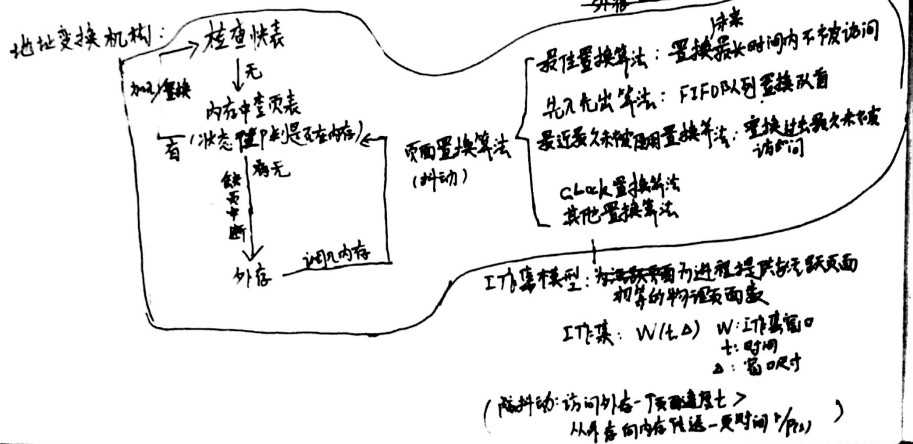 地址变换机构:
检查快表
无
加入/置换
内存中查页表
有(状态位P判是否在内存)
无
缺页中断
外存
调入内存
页面置换算法
(抖动)
未来
最佳置换算法:置换最长时间内不被访问
先入先出算法:FIFO队列置换队首
最近最久未被使用置换算法:置换过去最久未被
访问
CLock置换算法
其他置换算法
工作集模型:为进程提供与活跃页面
相等的物理页面数
工作集: W(t,Δ) W:工作集窗口
t:时间
Δ:窗口尺寸
(防抖动:访问外存一页面速度t >
从外存向内存传送一页时间